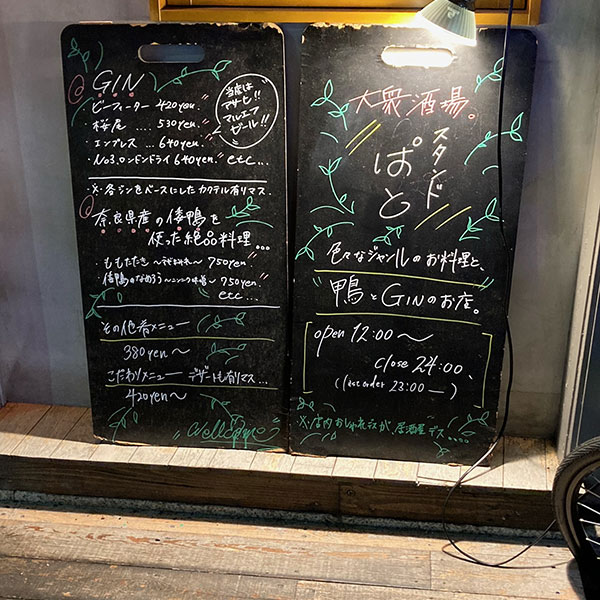 GIN
ビーフィーター 420yen.
・桜尾 .... 530yen.
・エンプレス … 640yen.
・No3.ロンドンドライ 640yen. etc…
当店は
アサヒ!!
マルエフ
ビール!!
※・各ジンをベースにしたカクテル有リマス.
奈良県産の倭鴨を
使った絶品料理…
・ももたたき 750yen
・倭鴨のなめろう 〜ニンニク味噌〜 750yen
etc...
その他肴メニュー
380yen〜
こだわりメニュー デザートも有リマス…
420yen〜
Wellcome
大衆酒場。
スタンド
ぱと
色々なジャンルのお料理と、
鴨とGINのお店。
open 12:00〜
close 24:00、
(Last order 23:00ー)
※・店内おしゃれですが、居酒屋デス....